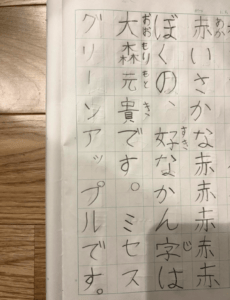 赤いさかな赤赤赤赤
ぼくの、好なかん字は
大森元貴です。ミセス
グリーンアップルです。